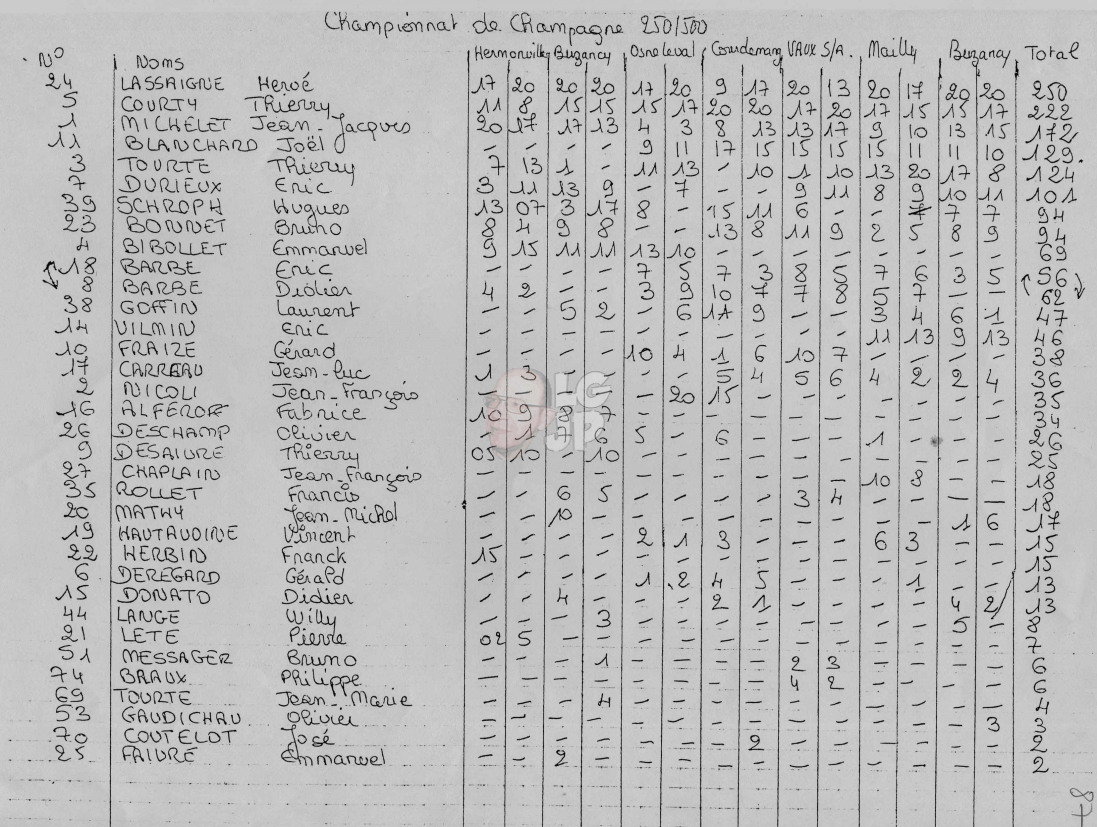 Championnat de Champagne 250/500
N° Noms Hermonville Buzancy Osne leval Courdemang VAUX S/A. Mailly Buzancy Total
24 LASSAIGNE Hervé 17 20 20 20 17 20 9 17 20 13 20 17 20 20 250
5 COURTY Thierry 11 8 15 15 15 17 20 20 17 20 17 15 15 17 222
1 MICHELET Jean-Jacques 20 17 17 13 4 3 8 13 13 17 9 10 13 15 172
11 BLANCHARD Joël - - - - 9 11 17 15 15 15 15 11 11 10 129.
3 TOURTE Thierry 7 13 1 - 11 13 - 10 1 10 13 20 17 8 124
7 DURIEUX Eric 3 11 13 9 - 7 - - 9 11 8 9 10 11 101
39 SCHROPH Hugues 13 07 3 17 8 - 15 11 6 - - 7 7 7 94
23 BONNET Bruno 8 4 9 8 - - 13 8 11 9 2 5 8 9 94
4 BIBOLLET Emmanuel 9 15 11 11 13 10 - - - - - - - - 69
18 BARBE Eric - - - - 7 5 7 3 8 5 7 6 3 5 56
8 BARBE Didier 4 2 - - 3 9 10 7 7 8 5 7 - - 62
38 GOFFIN Laurent - - 5 2 - 6 11 9 - - 3 4 6 1 47
14 VILMIN Eric - - - - - - - - - - 11 13 9 13 46
10 FRAIZE Gérard - - - - 10 4 1 6 10 7 - - - - 38
17 CARREAU Jean-Luc 1 3 - - - - 5 4 5 6 4 2 2 4 36
2 NICOLI Jean-François - - - - - 20 15 - - - - - - - 35
16 ALFÉROFF Fabrice 10 9 8 7 - - - - - - - - - - 34
26 DESCHAMP Olivier - 1 7 6 5 - 6 - - - 1 - - - 26
9 DESAIVRE Thierry 05 10 - 10 - - - - - - - - - - 25
27 CHAPLAIN Jean-François - - - - - - - - - - 10 8 - - 18
35 ROLLET Francis - - 6 5 - - - - 3 4 - - - - 18
20 MATHY Jean-Michel - - 10 - - - - - - - - - 1 6 17
19 HAUTAVOINE Vincent - - - - 2 1 3 - - - 6 3 - - 15
22 HERBIN Franck 15 - - - - - - - - - - - - - 15
6 DEREGARD Gérald - - - - 1 2 4 5 - - - 1 - - 13
15 DONATO Didier - - 4 - - - 2 1 - - - - 4 2 13
44 LANGE Willy - - - 3 - - - - - - - - 5 - 8
21 LETE Pierre 02 5 - - - - - - - - - - - - 7
51 MESSAGER Bruno - - - 1 - - - - 2 3 - - - - 6
74 BRAUX Philippe - - - - - - - - 4 2 - - - - 6
69 TOURTE Jean-Marie - - - 4 - - - - - - - - - - 4
53 GAUDICHAU Olivier - - - - - - - - - - - - - 3 3
70 COUTELOT José - - - - - - - 2 - - - - - - 2
25 FAIVRE Emmanuel - - 2 - - - - - - - - - - - 2
87
LG
UP